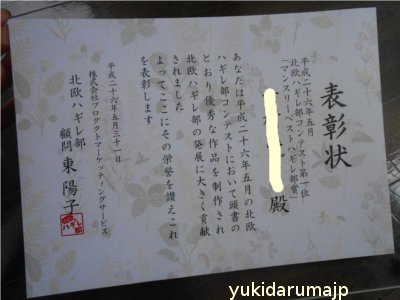 表彰状
平成二十六年五月
北欧ハギレ部コンテスト第一位
「マンスリーベストハギレ部賞」
殿
あなたは平成二十六年五月の北欧
ハギレ部コンテストにおいて頭書の
とおり優秀な作品を制作され
北欧ハギレ部の発展に大きく貢献
されました
よってここにその栄誉を讃えこれ
を表彰します
平成二十六年五月三十一日
株式会社プロダクトマーケッティングサービス
北欧ハギレ部
顧問 東 陽子
yukidarumajp